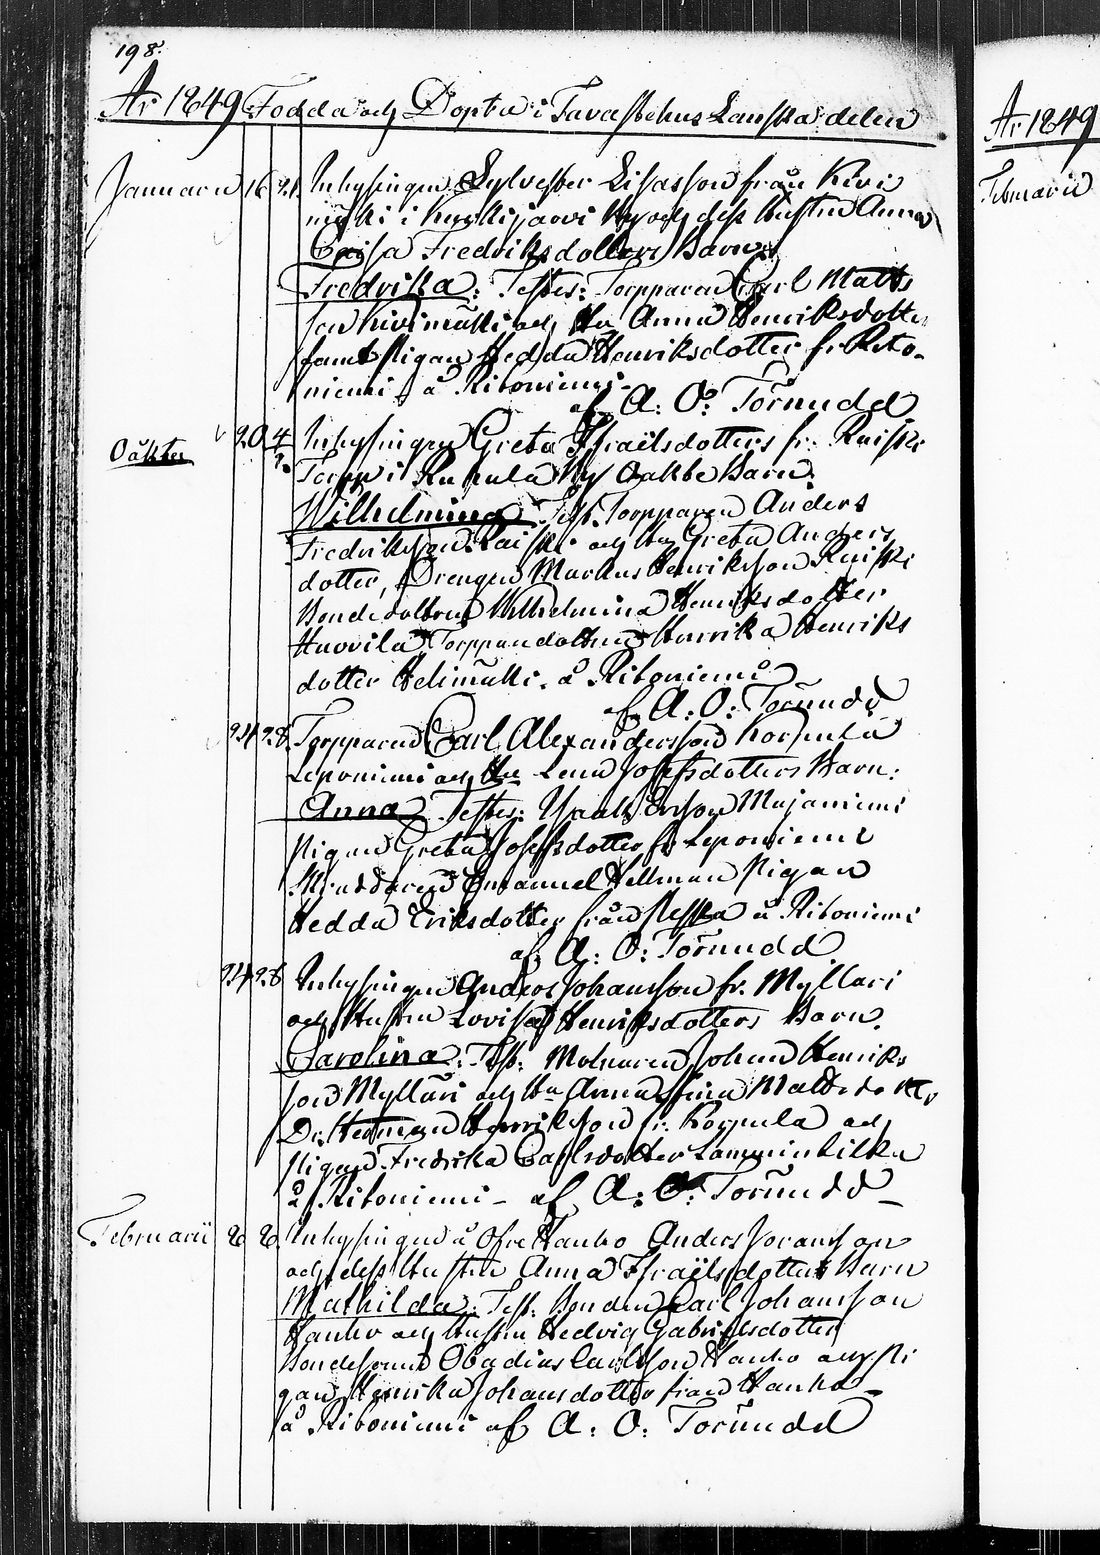 198.
År 1849 Födda och Döpta i Tavastehus Lanska delen
År 1849
Januarii 16 21. Inhysingen Sylvester Eisasson från Kivi
Februarii
mäki i Kurkijärvi By och dess Hustru Anna
Caisa Fredriksdotters Barn
Fredrika: Testes: Torpparen Carl Matts
son Kivimäki och Hu Anna Henriksdotter
samt Pigan Hedda Henriksdotter fr. Rito-
niemi å Ritoniemi
af A: O: Törnudd
Oäkta 20 4/2 Inhysingen Greta Israëlsdotters fr. Raiski
Torp i By Oäkte Barn:
Wilhelmina Test. Torpparen Anders
Fredriksson Raiski och Hu Greta Anders
dotter, Drengen Markus Henriksson Raiski
Bondedottren Wilhelmina Henriksdotter
Huovila Torpparedottren Henrika Henriks
dotter Helimäki. å Ritoniemi
af A: O: Törnudd
24 28. Torpparen Carl Alexandersson Korpula
Leponiemi och Hu Lena Josefsdotters Barn:
Anna Testes: Ersson Majaniemi
Pigan Greta Josefsdotter fr Leponiemi
Emanuel Hellman Pigan
Hedda Eriksdotter från å Ritoniemi
af A: O: Törnudd
24 28 Inhysingen Anders Johansson fr. Myllari
och Hustru Lovisa Henriksdotters Barn.
Carolina: Test: Molnaren Johan Henriks
son Myllari och Hu Anna Stina Matts dotter
Dr. Herman Henriksson fr. Korpula och
Pigan Fredrika Carlsdotter Lamminkilka
å Ritoniemi - af A: O: Törnudd -
Februarii 2 2. Inhysingen å Öfre Hanho Anders Joransson
och dess Hustru Anna Israëlsdotters Barn
Mathilda: Test. Bonden Carl Johansson
Hanho och Hustru Hedvig Gabrielsdotter
Bondesonen Obadias Carlsson Hanho och Pi
gan Henrika Johansdotter från Hanho -
å Ritoniemi af A: O: Törnudd